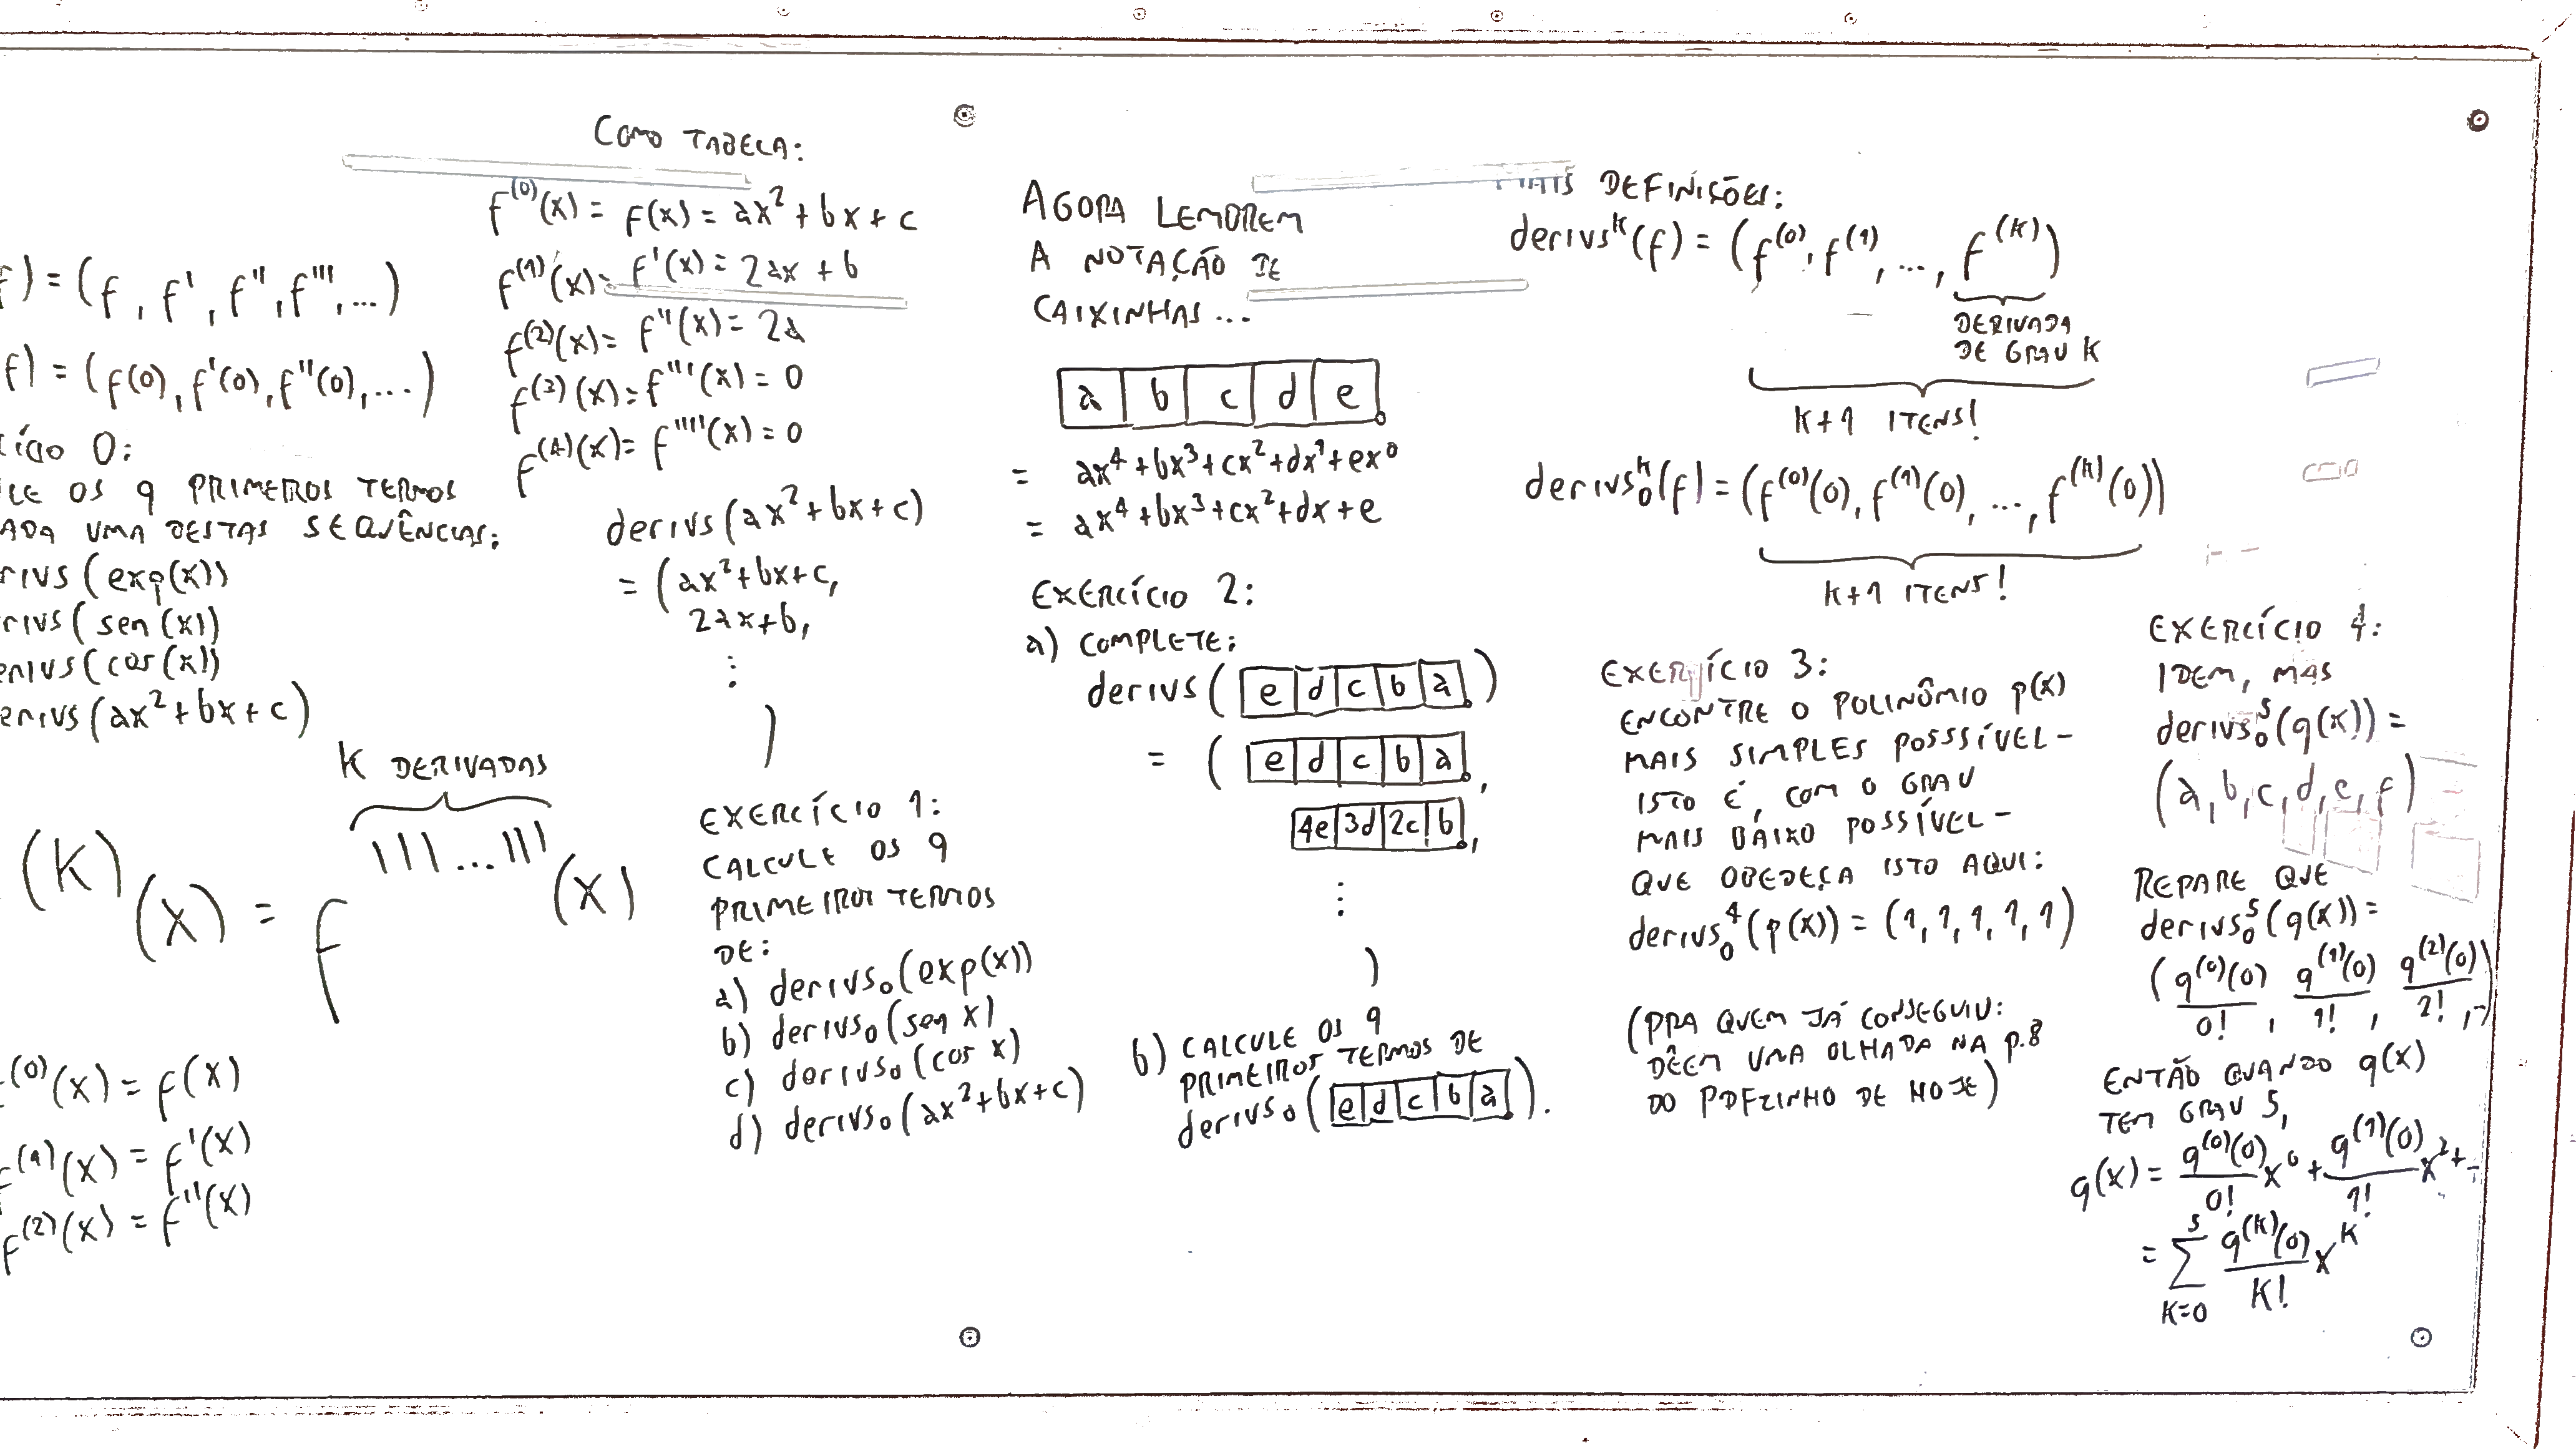 f) = (f, f', f'', f''', ...)
f) = (f(0), f'(0), f''(0), ...)
ício 0:
LE OS 9 PRIMEIROS TERMOS
ADA UMA DESTAS SEQUÊNCIAS:
rivs(exp(x))
rivs(sen(x))
erivs(cos(x))
erivs(ax²+bx+c)
K DERIVADAS
(K)(x) = f'''...'''(x)
(0)(x) = f(x)
f⁽¹⁾(x) = f'(x)
f⁽²⁾(x) = f''(x)
COMO TABELA:
f⁽⁰⁾(x) = f(x) = ax²+bx+c
f⁽¹⁾(x) = f'(x) = 2ax+b
f⁽²⁾(x) = f''(x) = 2a
f⁽³⁾(x) = f'''(x) = 0
f⁽⁴⁾(x) = f''''(x) = 0
derivs(ax²+bx+c)
= (ax²+bx+c,
2ax+b,
⋮
)
EXERCÍCIO 1:
CALCULE OS 9
PRIMEIROS TERMOS
DE:
a) derivs₀(exp(x))
b) derivs₀(sen x)
c) derivs₀(cos x)
d) derivs₀(ax²+bx+c)
AGORA LEMBREM
A NOTAÇÃO DE
CAIXINHAS...
a b c d e.
= ax⁴+bx³+cx²+dx¹+ex⁰
= ax⁴+bx³+cx²+dx+e
EXERCÍCIO 2:
a) COMPLETE:
derivs( e d c b a. )
= ( e d c b a. ,
4e 3d 2c b. ,
⋮
)
b) CALCULE OS 9
PRIMEIROS TERMOS DE
derivs₀( e d c b a. ).
MAIS DEFINIÇÕES:
derivsᵏ(f) = (f⁽⁰⁾, f⁽¹⁾, ..., f⁽ᵏ⁾)
DERIVADA
DE GRAU K
K+1 ITENS!
derivs₀ᵏ(f) = (f⁽⁰⁾(0), f⁽¹⁾(0), ..., f⁽ᵏ⁾(0))
K+1 ITENS!
EXERCÍCIO 3:
ENCONTRE O POLINÔMIO p(x)
MAIS SIMPLES POSSSÍVEL -
ISTO É, COM O GRAU
MAIS BAIXO POSSÍVEL -
QUE OBEDEÇA ISTO AQUI:
derivs₀⁴(p(x)) = (1,1,1,1,1)
(PRA QUEM JÁ CONSEGUIU:
DÊEM UMA OLHADA NA p.8
DO PDFZINHO DE HOJE)
EXERCÍCIO 4:
IDEM, MAS
derivs₀⁵(q(x)) =
(a,b,c,d,e,f)
REPARE QUE
derivs₀⁵(q(x)) =
(q⁽⁰⁾(0)/0!, q⁽¹⁾(0)/1!, q⁽²⁾(0)/2!, ...)
ENTÃO QUANDO q(x)
TEM GRAU 5,
q(x) = q⁽⁰⁾(0)/0! x⁰ + q⁽¹⁾(0)/1! x² + ...
= ∑ₖ₌₀⁵ q⁽ᵏ⁾(0)/K! xᴷ